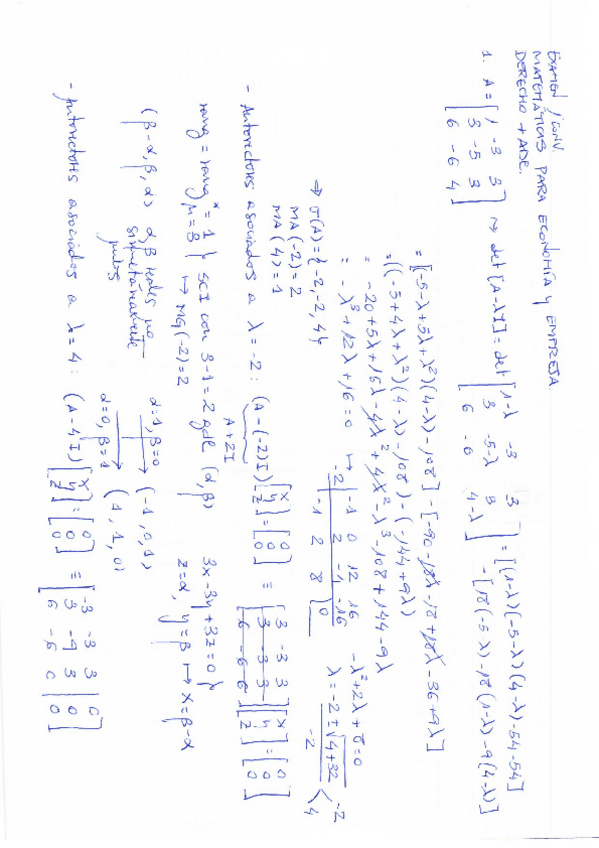 EXAMEN 1 CONV.
MATEMÁTICAS PARA ECONOMÍA Y EMPRESA
DERECHO + ADE.
1. A = [1 -3 3; 3 -5 3; 6 -6 4] → det[A-λI] = det [1-λ -3 3; 3 -5-λ 3; 6 -6 4-λ] = [(1-λ)(-5-λ)(4-λ)-54-54]
- [18(-5-λ)-18(1-λ)-9(4-λ)]
= [(-5-λ+5λ+λ²)(4-λ)-108] - [-90-18λ-18+18λ-36+9λ]
= ((-5+4λ+λ²)(4-λ)-108) - (-144+9λ)
= -20+5λ+16λ-4λ²+4λ²-λ³-108+144-9λ
= -λ³+12λ+16=0 →
-1 0 12 16
-2 2 -4 -16
-1 2 8 0
-λ²+2λ+8=0
λ = -2±√4+32 / -2 < -2 4
⇒ σ(A) = {-2,-2,4}
MA(-2)=2
MA(4)=1
- Autovectores asociados a λ=-2: (A-(-2)I) [x y z] = [0 0 0] ≡ [3 -3 3; 3 -3 3; 6 -6 6] [x y z] = [0 0 0]
A+2I
rang = rang* = 1 } SCI con 3-1=2 gdl (α,β)
μ=3 ↦ MG(-2)=2
3x-3y+3z=0}
z=α, y=β ↦ x=β-α
(β-α, β, α) α,β reales no
simultáneamente
nulos
α=1, β=0 → (-1,0,1)
α=0, β=1 → (1,1,0)
- Autovectores asociados a λ=4: (A-4I) [x y z] = [0 0 0] ≡ [-3 -3 3 | 0; 3 -9 3 | 0; 6 -6 0 | 0]